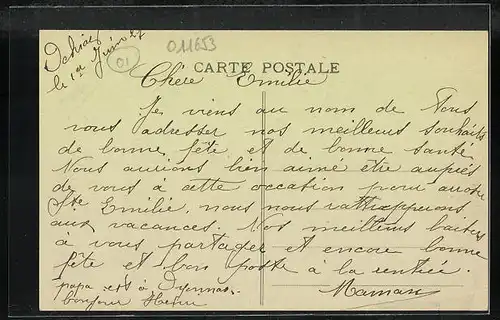 le 1er Juin 27
01
011653
CARTE POSTALE
Chère Emilie
Je viens au nom de Tous
vous adresser nos meilleurs souhaits
de bonne fête et de bonne santé
Nous aurions bien aimé être auprès
de vous à cette occation pour
Ste Emilie, nous nous rattrapperons
aux vacances. Nos meilleurs baisers
à vous partager et encore bonne
fête et bon poste à la rentrée.
papa est à Oyonnax
Maman
bonjour